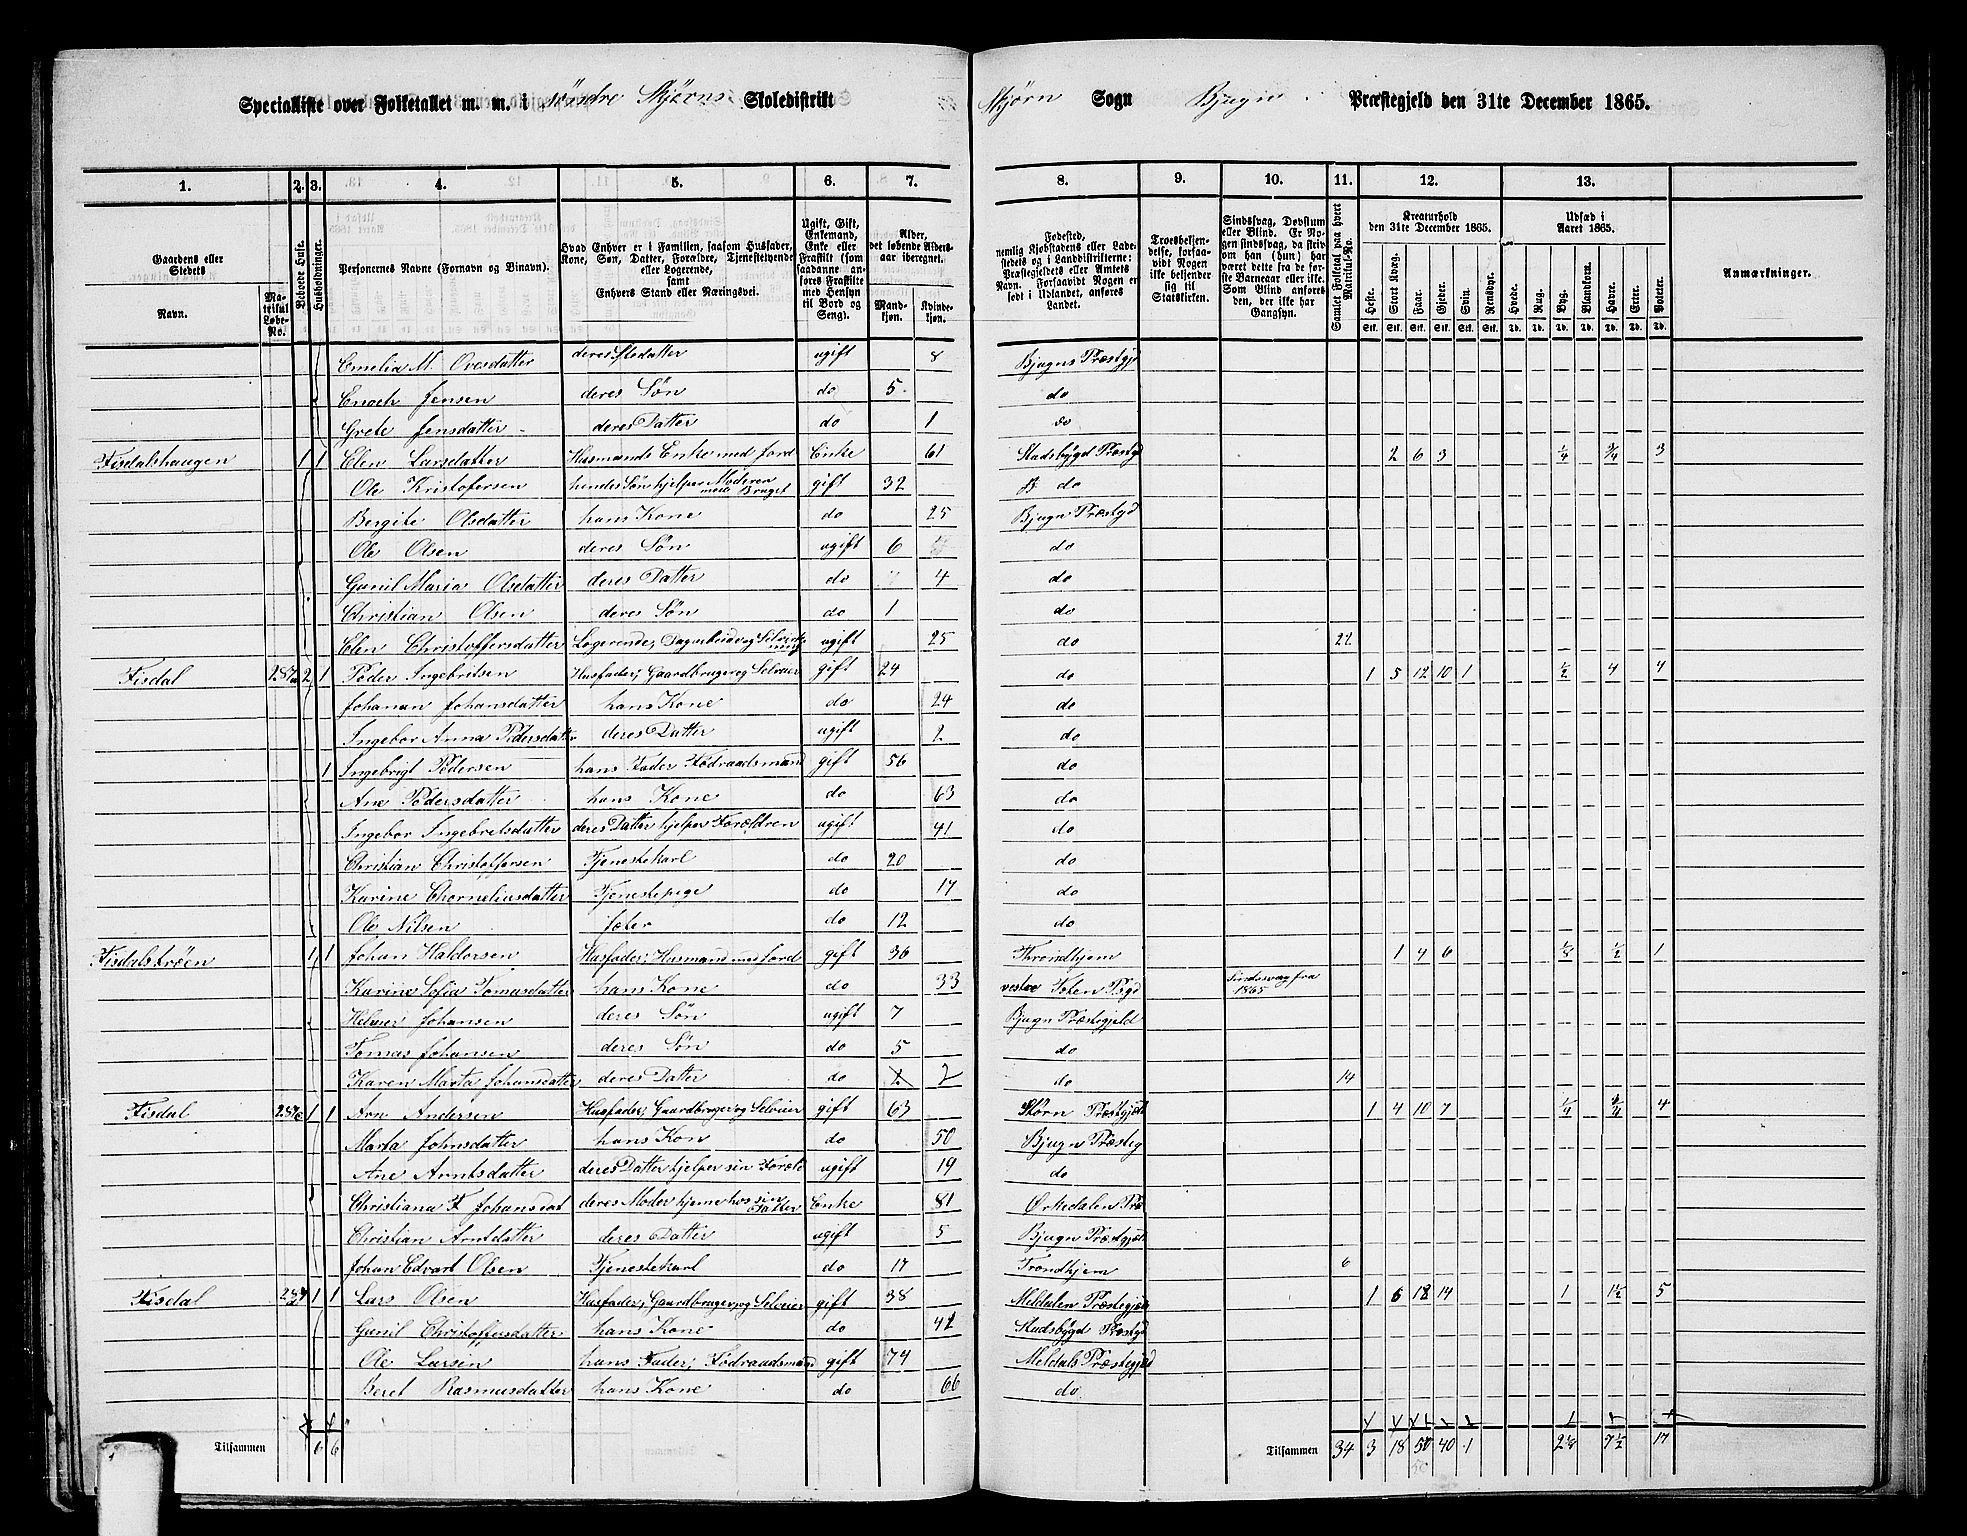 Specialliste over Folketallet m. m. i søndre Skjørns Skoledistrikt Skjørn Sogn Bjugn Præstegjeld den 31te December 1865.
1. 2. 3. 4. 5. 6. 7. 8. 9. 10. 11. 12. 13.
Gaardens eller Stedets Navn. Matrikul Løbe-No. Beboede Huse. Husholdninger. Personernes Navne (Fornavn og Binavn). Hvad Enhver er i Familien, saasom Husfader, Kone, Søn, Datter, Forældre, Tjenestetyende eller Logerende, samt Enhvers Stand eller Næringsvei. Ugift, Gift, Enkemand, Enke eller Fraskilt (som saadanne anføres Fraskilte med Hensyn til Bord og Seng). Alder, det løbende Alders-aar iberegnet. Mandkjøn. Kvindekjøn.
Fødested, nemlig Kjøbstadens eller Ladestedets og i Landdistrikterne: Præstegjeldets eller Amtets Navn. Forsaavidt Nogen er født i Udlandet, anføres Landet. Troesbekjendelse, forsaavidt Nogen ikke bekjender sig til Statskirken. Sindssvag, Døvstum eller Blind. Er Nogen sindssvag, da skrives om han (hun) har været dette fra de første Barneaar eller ikke. Som Blind anføres den, der ikke har Gangsyn. Samlet Folketal paa hvert Matrikul-No. Kreaturhold den 31te December 1865. Udsæd i Aaret 1865. Anmærkninger.
Heste. Stort Kvæg. Faar. Gjeder. Svin. Rensdyr. Hvede. Rug. Byg. Blandkorn. Havre. Erter. Poteter.
Emelia M. Ovesdatter deres Stedatter ugift 8 Bjugns Præstgjd
Enoch Jensen deres Søn do 5 do
Grete Jensdatter deres Datter do 1 do
Fisdalshaugen 1 1 Elen Larsdatter Husmands Enke med Jord Enke 61 Stadsbygd Præstgd 2 6 3 1/4 3/4 3
Ole Kristofersen hendes Søn hjelper Moderen med Bruget gift 32 B do
Bergite Olsdatter hans Kone do 25 Bjugn Præstgd
Ole Olsen deres Søn ugift 6 do
Gunil Maria Olsdatter deres Datter do 4 do
Christian Olsen deres Søn do 1 do
Elen Christoffersdatter Logerende, ugift 25 do 22
Fisdal 2 1 Peder Ingebritsen Husfader; Gaardbruger og Selveier gift 24 do 1 5 12 10 1 1/2 4 4
Johanan Johansdatter hans Kone do 24 do
Ingebor Anna Pedersdatter deres Datter ugift 2 do
1 Ingebrigt Pedersen hans Fader Fødraadsmand gift 56 do
Ane Pedersdatter hans Kone do 63 do
Ingebor Ingebretsdatter deres Datter hjelper Forældren ugift 41 do
Christian Christoffersen Tjenestekarl do 20 do
Karine Chorneliusdatter Tjenestepige do 17 do
Ole Nilsen do 12 do
Fisdalstrøen 1 1 Johan Haldorsen Husfader; Husmand med Jord gift 36 Throndhjem 1 4 6 1/8 1/2 1
Karine Sofia Tomasdatter hans Kone do 33 vestre Toten Prgd Sindssvag fra 1865
Helmer Johansen deres Søn ugift 7 Bjugn Præstegjeld
Tomas Johansen deres Søn do 5 do
Karen Marta Johansdatter deres Datter do 2 2 do 14
Fisdal 1 1 Arn Andersen Husfader; Gaardbruger og Selveier gift 63 Størn Præstgjeld 1 4 10 7 1/4 4
Marta Johnsdatter hans Kon do 50 Bjugn Præsteg
Ane Arntsdatter deres Datter hjelper sin Foræld ugift 19 do
Christiana F Johansdat deres Moder hjeme hos sin Datter Enke 81 Ørkedalen Præ
Christian Arntdatter deres Datter ugift 5 Bjugn Præstgjeld
Johan Edvart Olsen Tjenestekarl do 17 Trondhjem 6
Fisdal 1 1 Lars Olsen Husfader; Gaardbruger og Selveier gift 38 Meldalen Præstegjeld 1 6 18 14 1 1 1/2 5
Gunil Christoffersdatter hans Kone do 42 Stadsbygd Præstgd
Ole Larsen hans Fader; Fødraadsmand gift 74 Meldals Præstegjeld
Beret Rasmusdatter hans Kone do 66 do
Tilsammen 6 6 Tilsammen 34 3 18 50 40 1 2 1/8 7 1/2 17
50